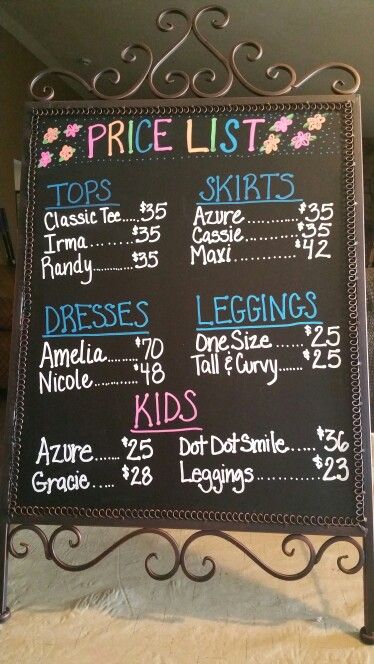 PRICE LIST
TOPS
Classic Tee.....$35
Irma........$35
Randy...........$35
SKIRTS
Azure...........$35
Cassie..........$35
Maxi...........$42
DRESSES
Amelia........$70
Nicole...........$48
LEGGINGS
One Size......$25
Tall & Curvy.......$25
KIDS
Azure......$25
Gracie.....$28
Dot Dot Smile.....$36
Leggings...........$23